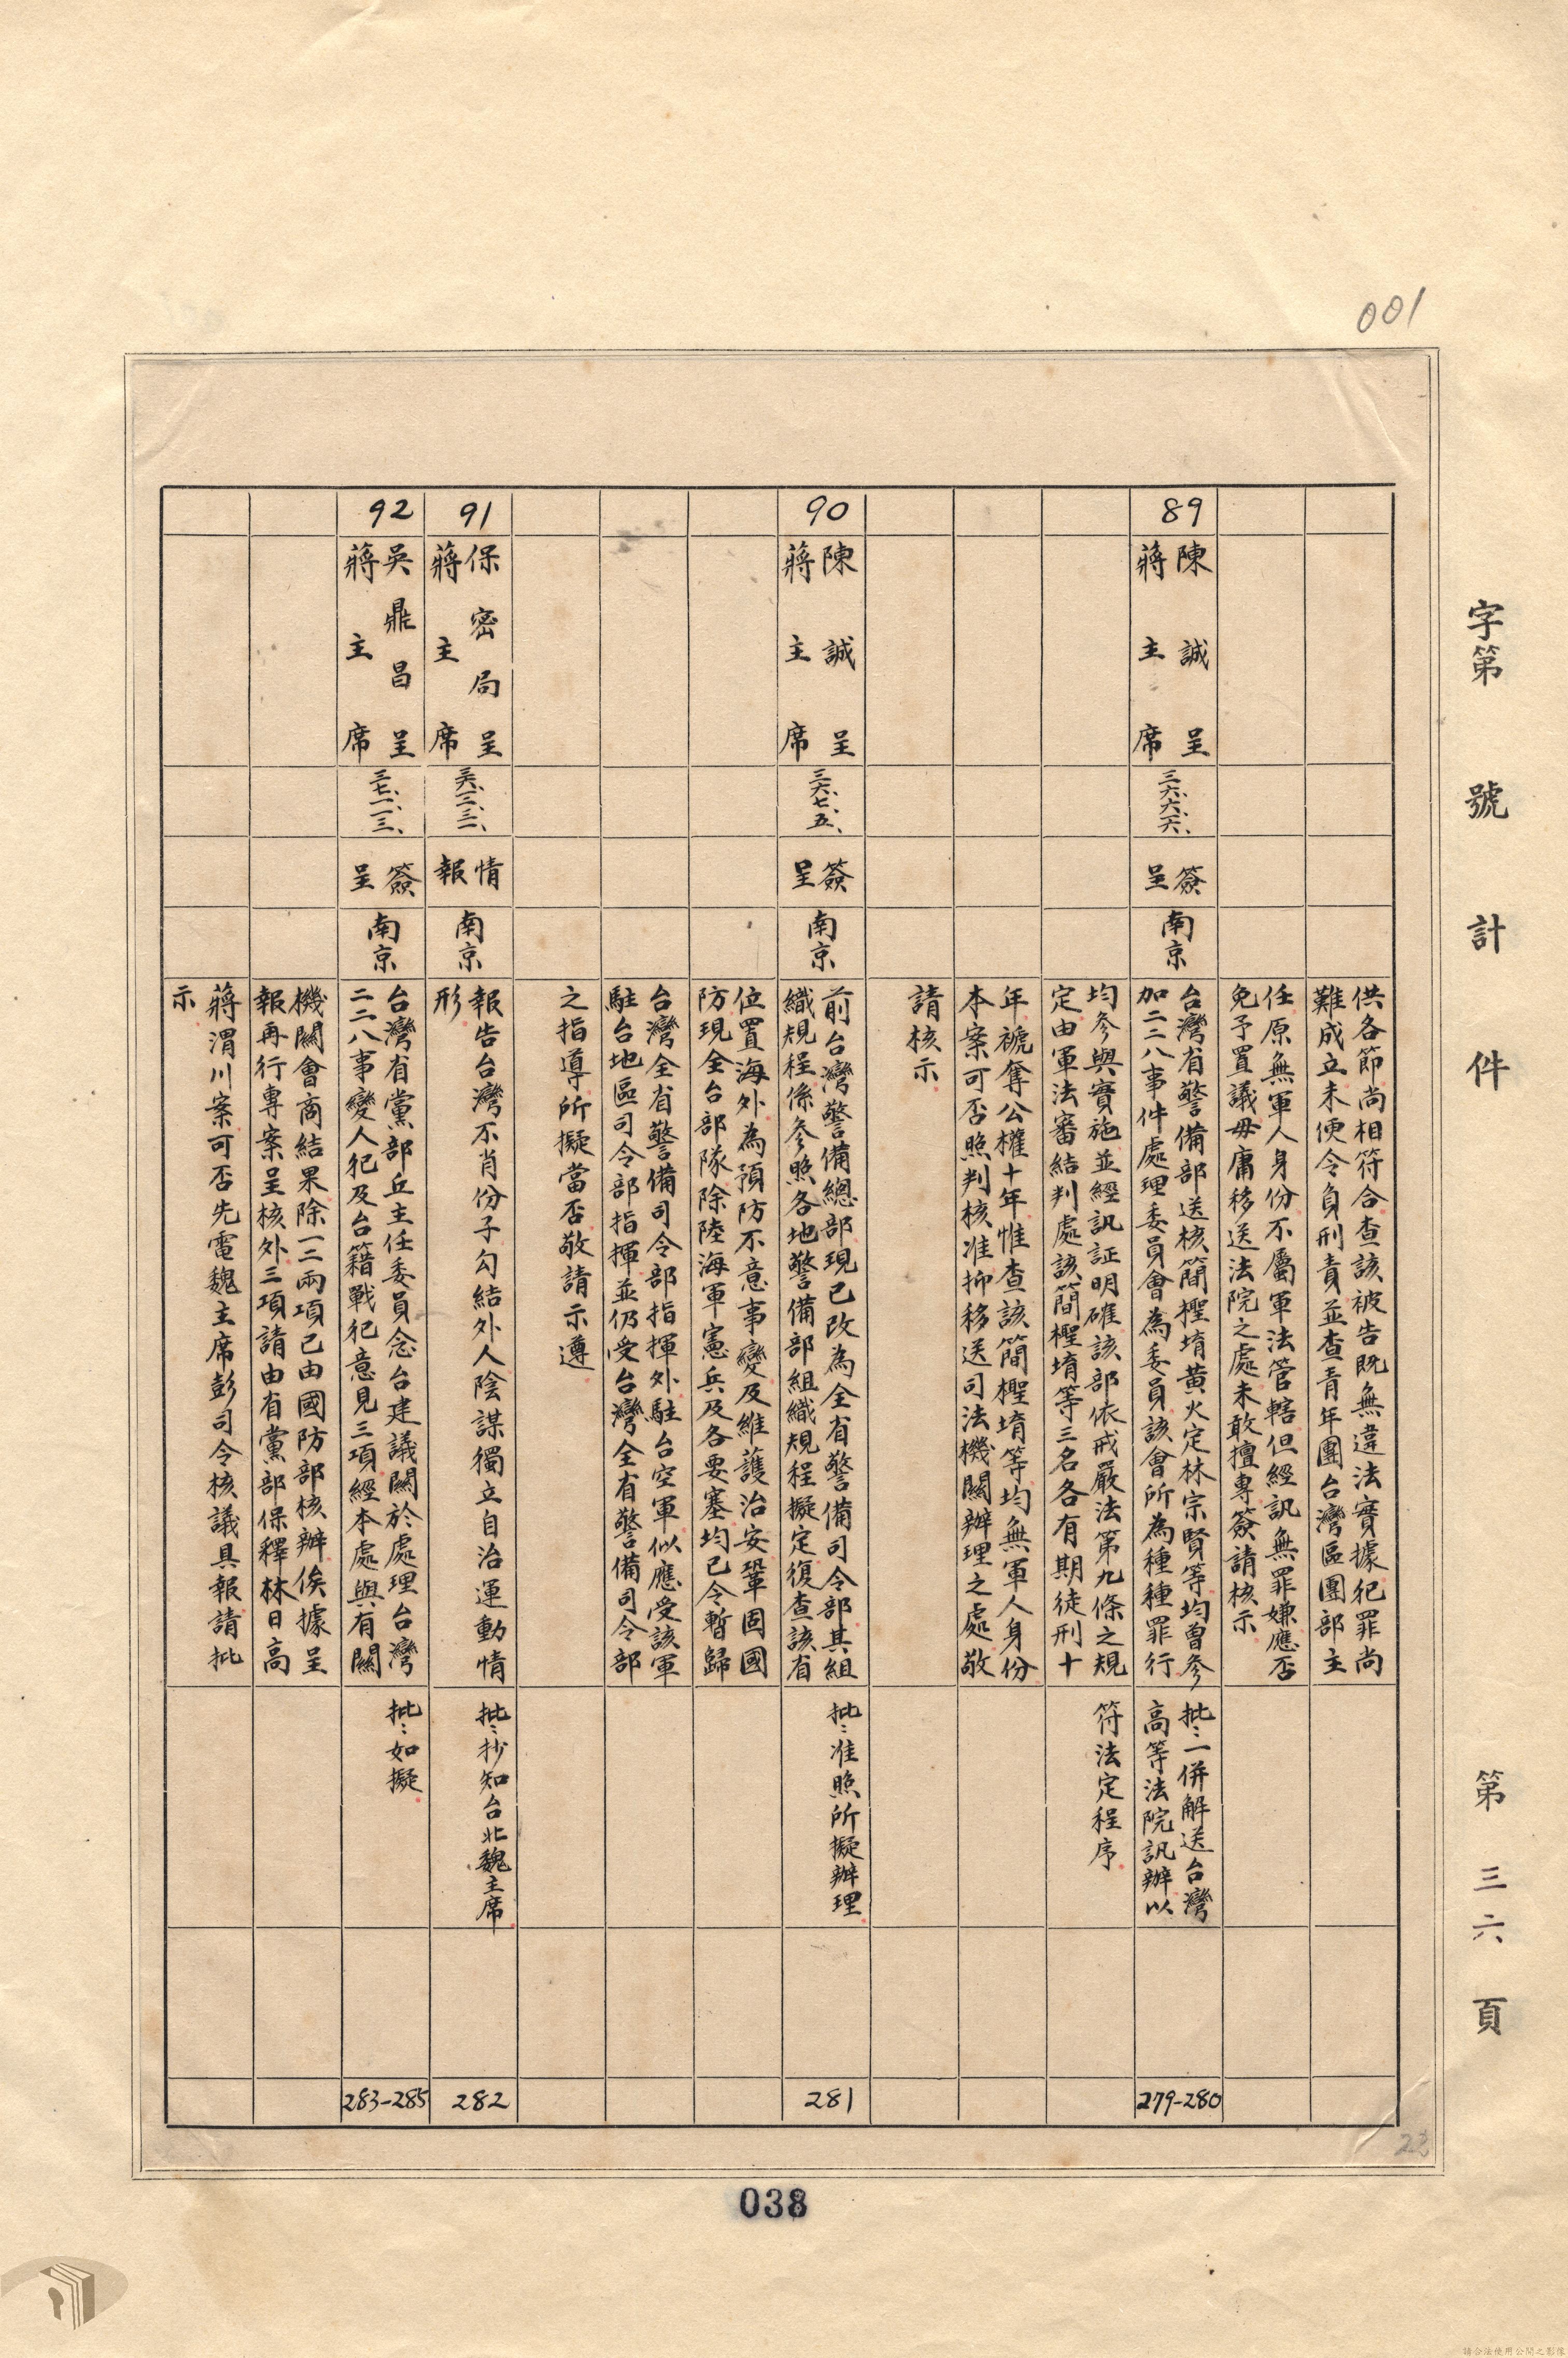 001
字第 號 計 件 第 三六 頁
供各節尚相符合查該被告既無違法實據犯罪尚
難成立未便令負刑責並查青年團台灣區團部主
任原無軍人身份不屬軍法管轄但經訊無罪嫌應否
免予置議毋庸移送法院之處未敢擅專簽請核示
89
陳誠呈
蔣主席
三六、六、六、
簽呈
南京
台灣省警備部送核簡檉堉黃火定林宗賢等均曾參
加二二八事件處理委員會為委員該會所為種種罪行
均參與實施並經訊証明確該部依戒嚴法第九條之規
定由軍法審結判處該簡檉堉等三名各有期徒刑十
年褫奪公權十年惟查該簡檉堉等均無軍人身份
本案可否照判核准抑移送司法機關辦理之處敬
請核示
批：一併解送台灣
高等法院訊辦以
符法定程序
279-280
90
陳誠呈
蔣主席
三六、七、五、
簽呈
南京
前台灣警備總部現已改為全省警備司令部其組
織規程係參照各地警備部組織規程擬定復查該省
位置海外為預防不意事變及維護治安鞏固國
防現全台部隊除陸海軍憲兵及各要塞均已令暫歸
台灣全省警備司令部指揮外駐台空軍似應受該軍
駐台地區司令部指揮並仍受台灣全省警備司令部
之指導所擬當否敬請示遵
批：准照所擬辦理
281
91
保密局呈
蔣主席
情報
南京
報告台灣不肖份子勾結外人陰謀獨立自治運動情
形
批：抄知台北魏主席
282
92
吳鼎昌呈
蔣主席
三七、一、一三、
簽呈
南京
台灣省黨部丘主任委員念台建議關於處理台灣
二二八事變人犯及台籍戰犯意見三項經本處與有關
機關會商結果除一二兩項已由國防部核辦俟據呈
報再行專案呈核外三項請由省黨部保釋林日高
蔣渭川案可否先電魏主席彭司令核議具報請批
示
批：如擬
283-285
038
請合法使用公開之影像